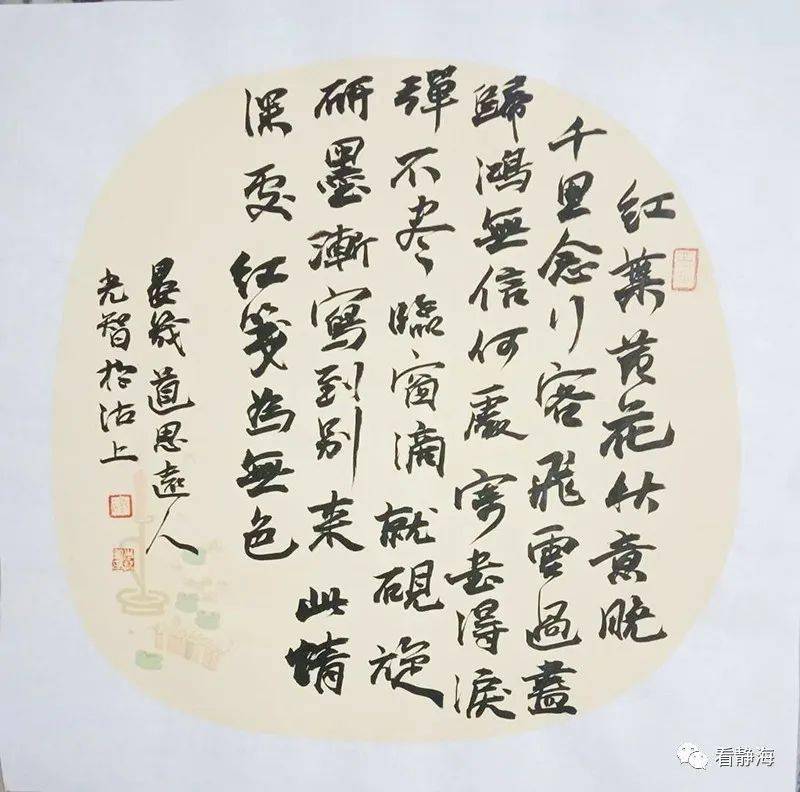 紅葉黄花秋意晚
千里念行客飛雲過盡
歸鴻無信何處寄書得淚
彈不尽臨窗滴就硯旋
研墨漸寫到别来此情
深處紅箋為無色
晏幾道思遠人
光智於沽上
看静海